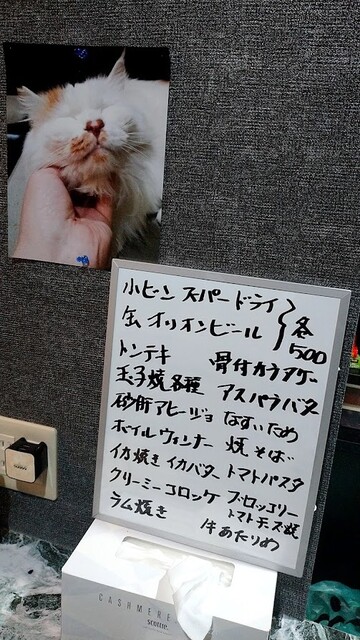 小ビン スーパードライ
缶 オリオンビール
各500
トンテキ 骨付カラアゲー
玉子焼各種 アスパラバター
砂肝アヒージョ なすいため
ホイルウィンナー 焼そば
イカ焼き イカバター トマトパスタ
クリーミーコロッケ ブロッコリー
トマトチーズ焼
ラム焼き 牛あたりめ
CASHMERE
scottie